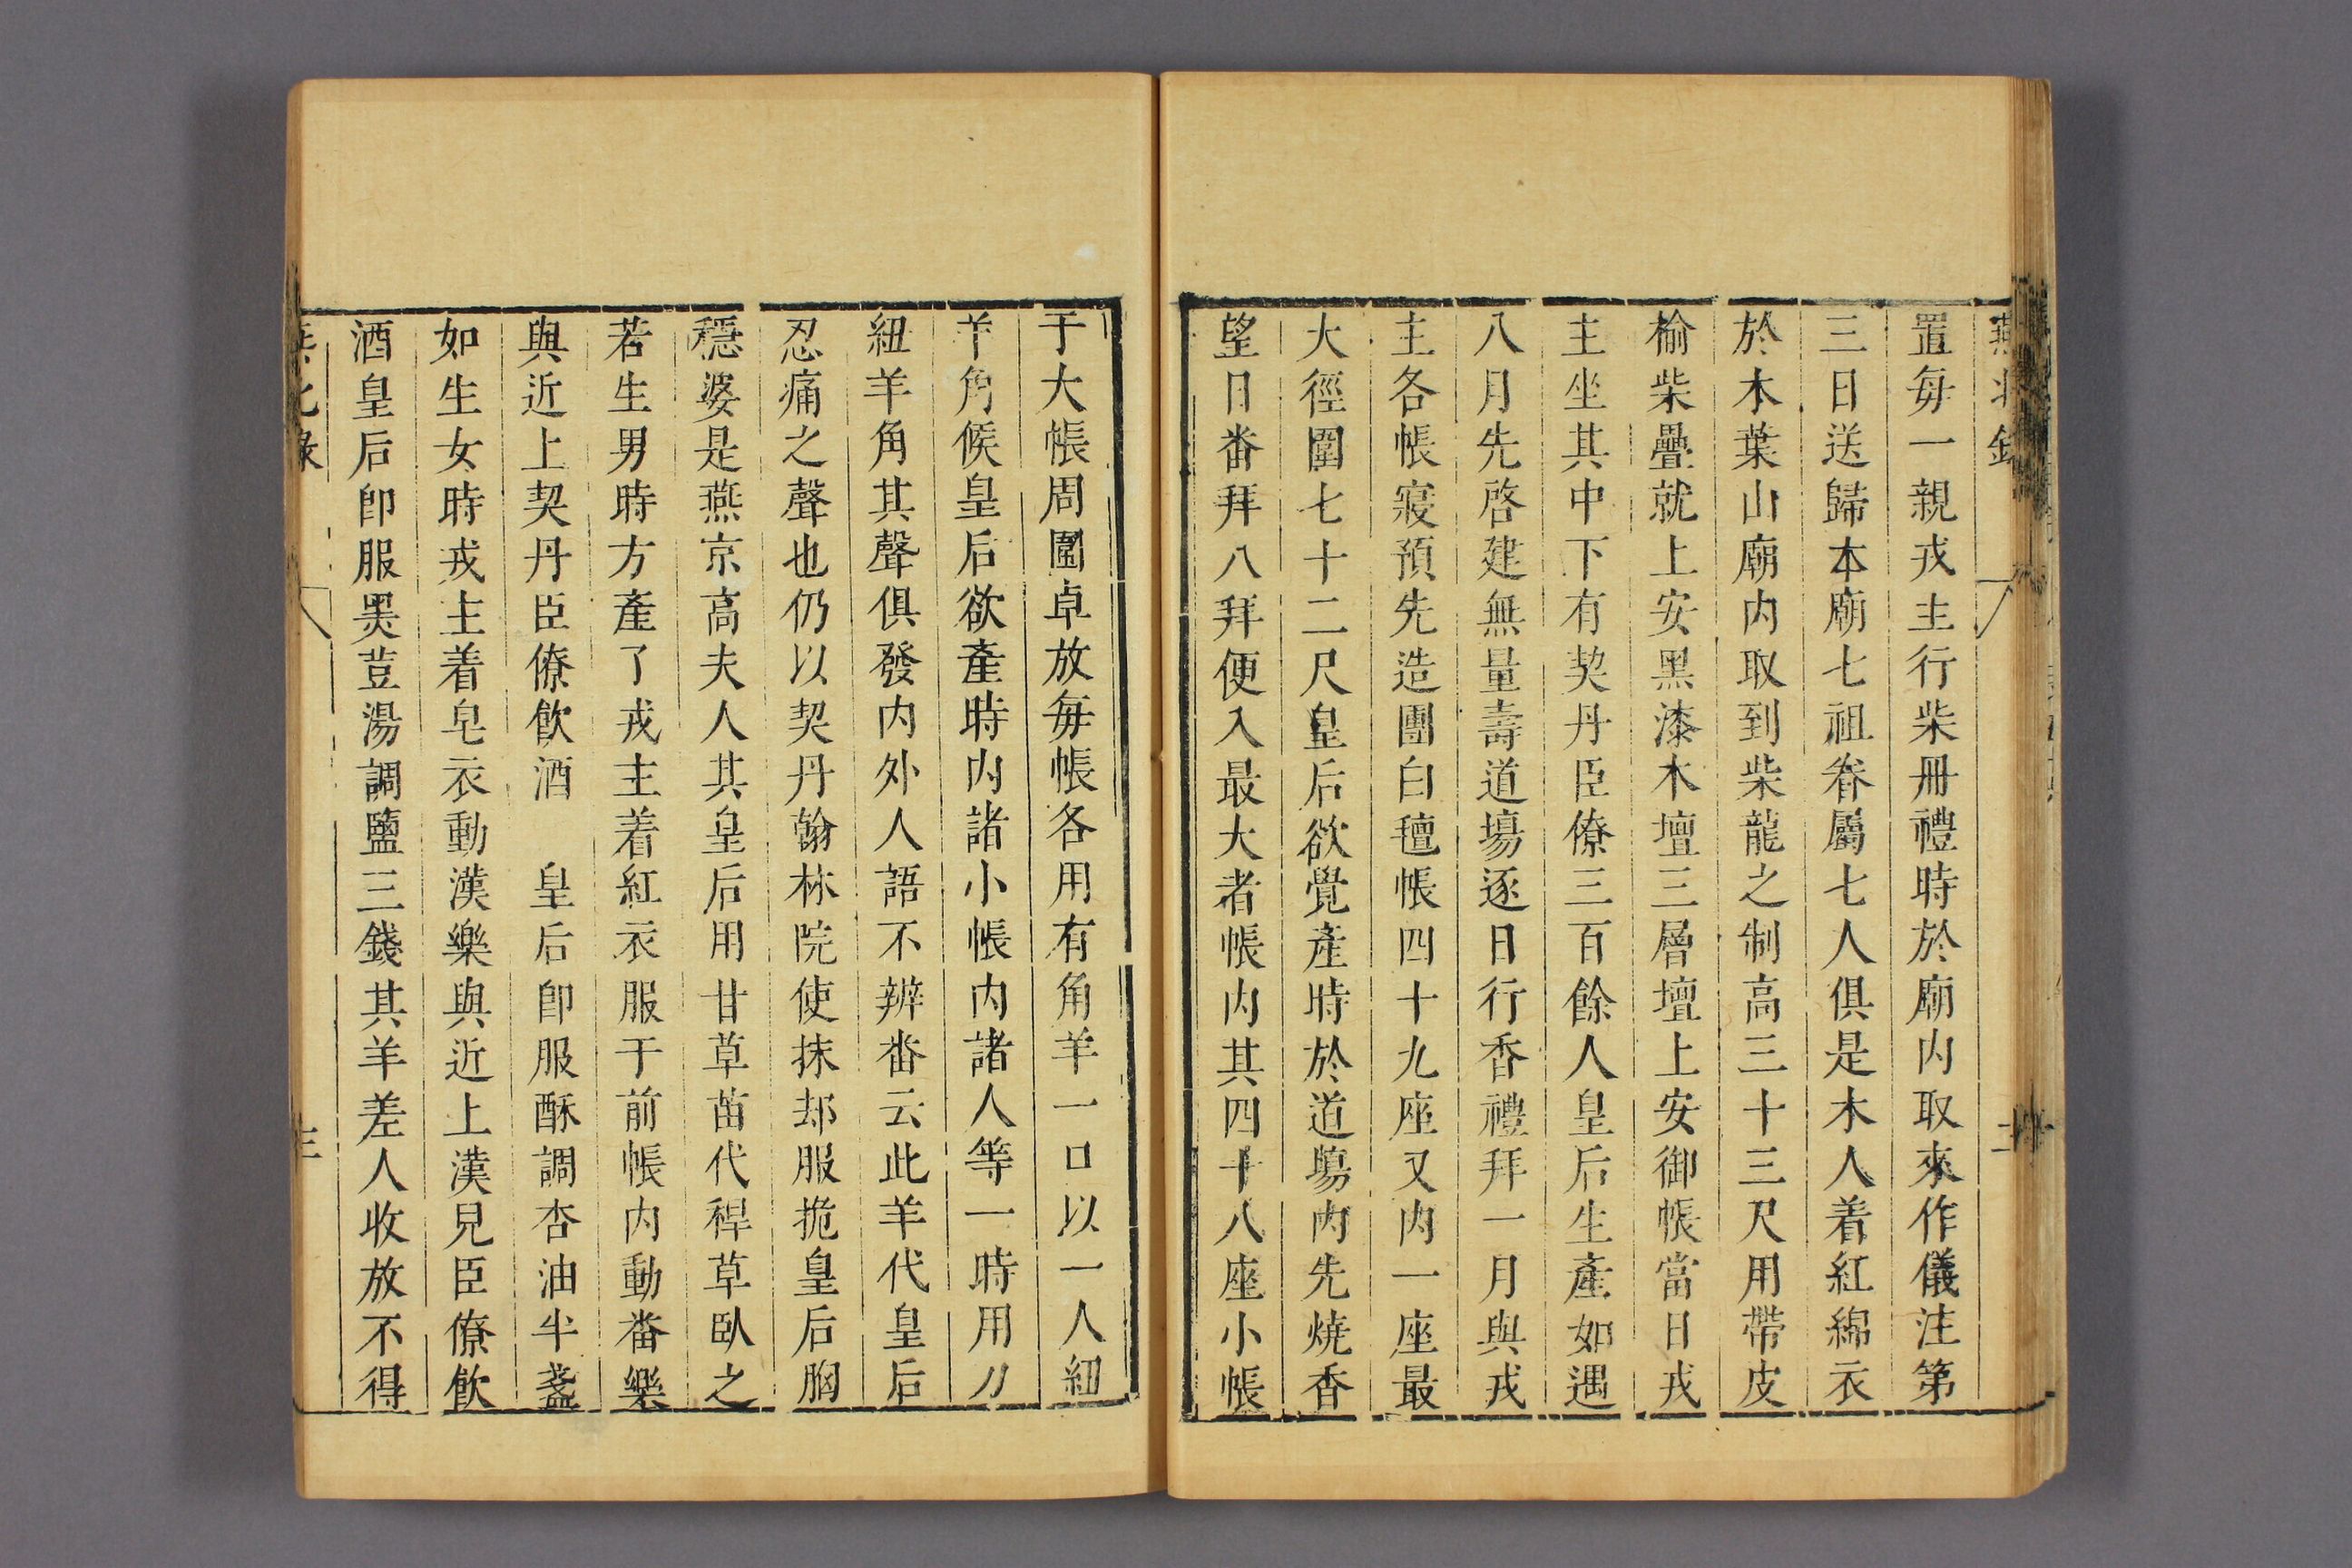 置每一親戎主行柴冊禮時於廟内取來作儀注第
三日送歸本廟七祖眷屬七人俱是木人着紅綿衣
於木葉山廟内取到柴龍之制高三十三尺用帶皮
榆柴疊就上安黑漆木壇三層壇上安御帳當日戎
主坐其中下有契丹臣僚三百餘人皇后生產如過
八月先啓建無量壽道場逐日行香禮拜一月與戎
主各帳寢預先造團白氊帳四十九座又内一座最
大徑圍七十二尺皇后欲覺產時於道塲内先燒香
望日番拜八拜便入最大者帳内其四十八座小帳
于大帳周圍卓放每帳各用有角羊一口以一人紐
羊角候皇后欲產時内諸小帳内諸人等一時用刀
紐羊角其聲俱發内外人語不辨畨云此羊代皇后
忍痛之聲也仍以契丹翰林院使抹却服抱皇后胸
穩婆是燕京高夫人其皇后用甘草苗代稈草臥之
若生男時方產了戎主着紅衣服于前帳内動畨樂
與近上契丹臣僚飮酒　皇后卽服酥調杏油半盞
如生女時戎主着皂衣動漢樂與近上漢兒臣僚飮
酒皇后卽服黑荳湯調鹽三錢其羊差人收放不得